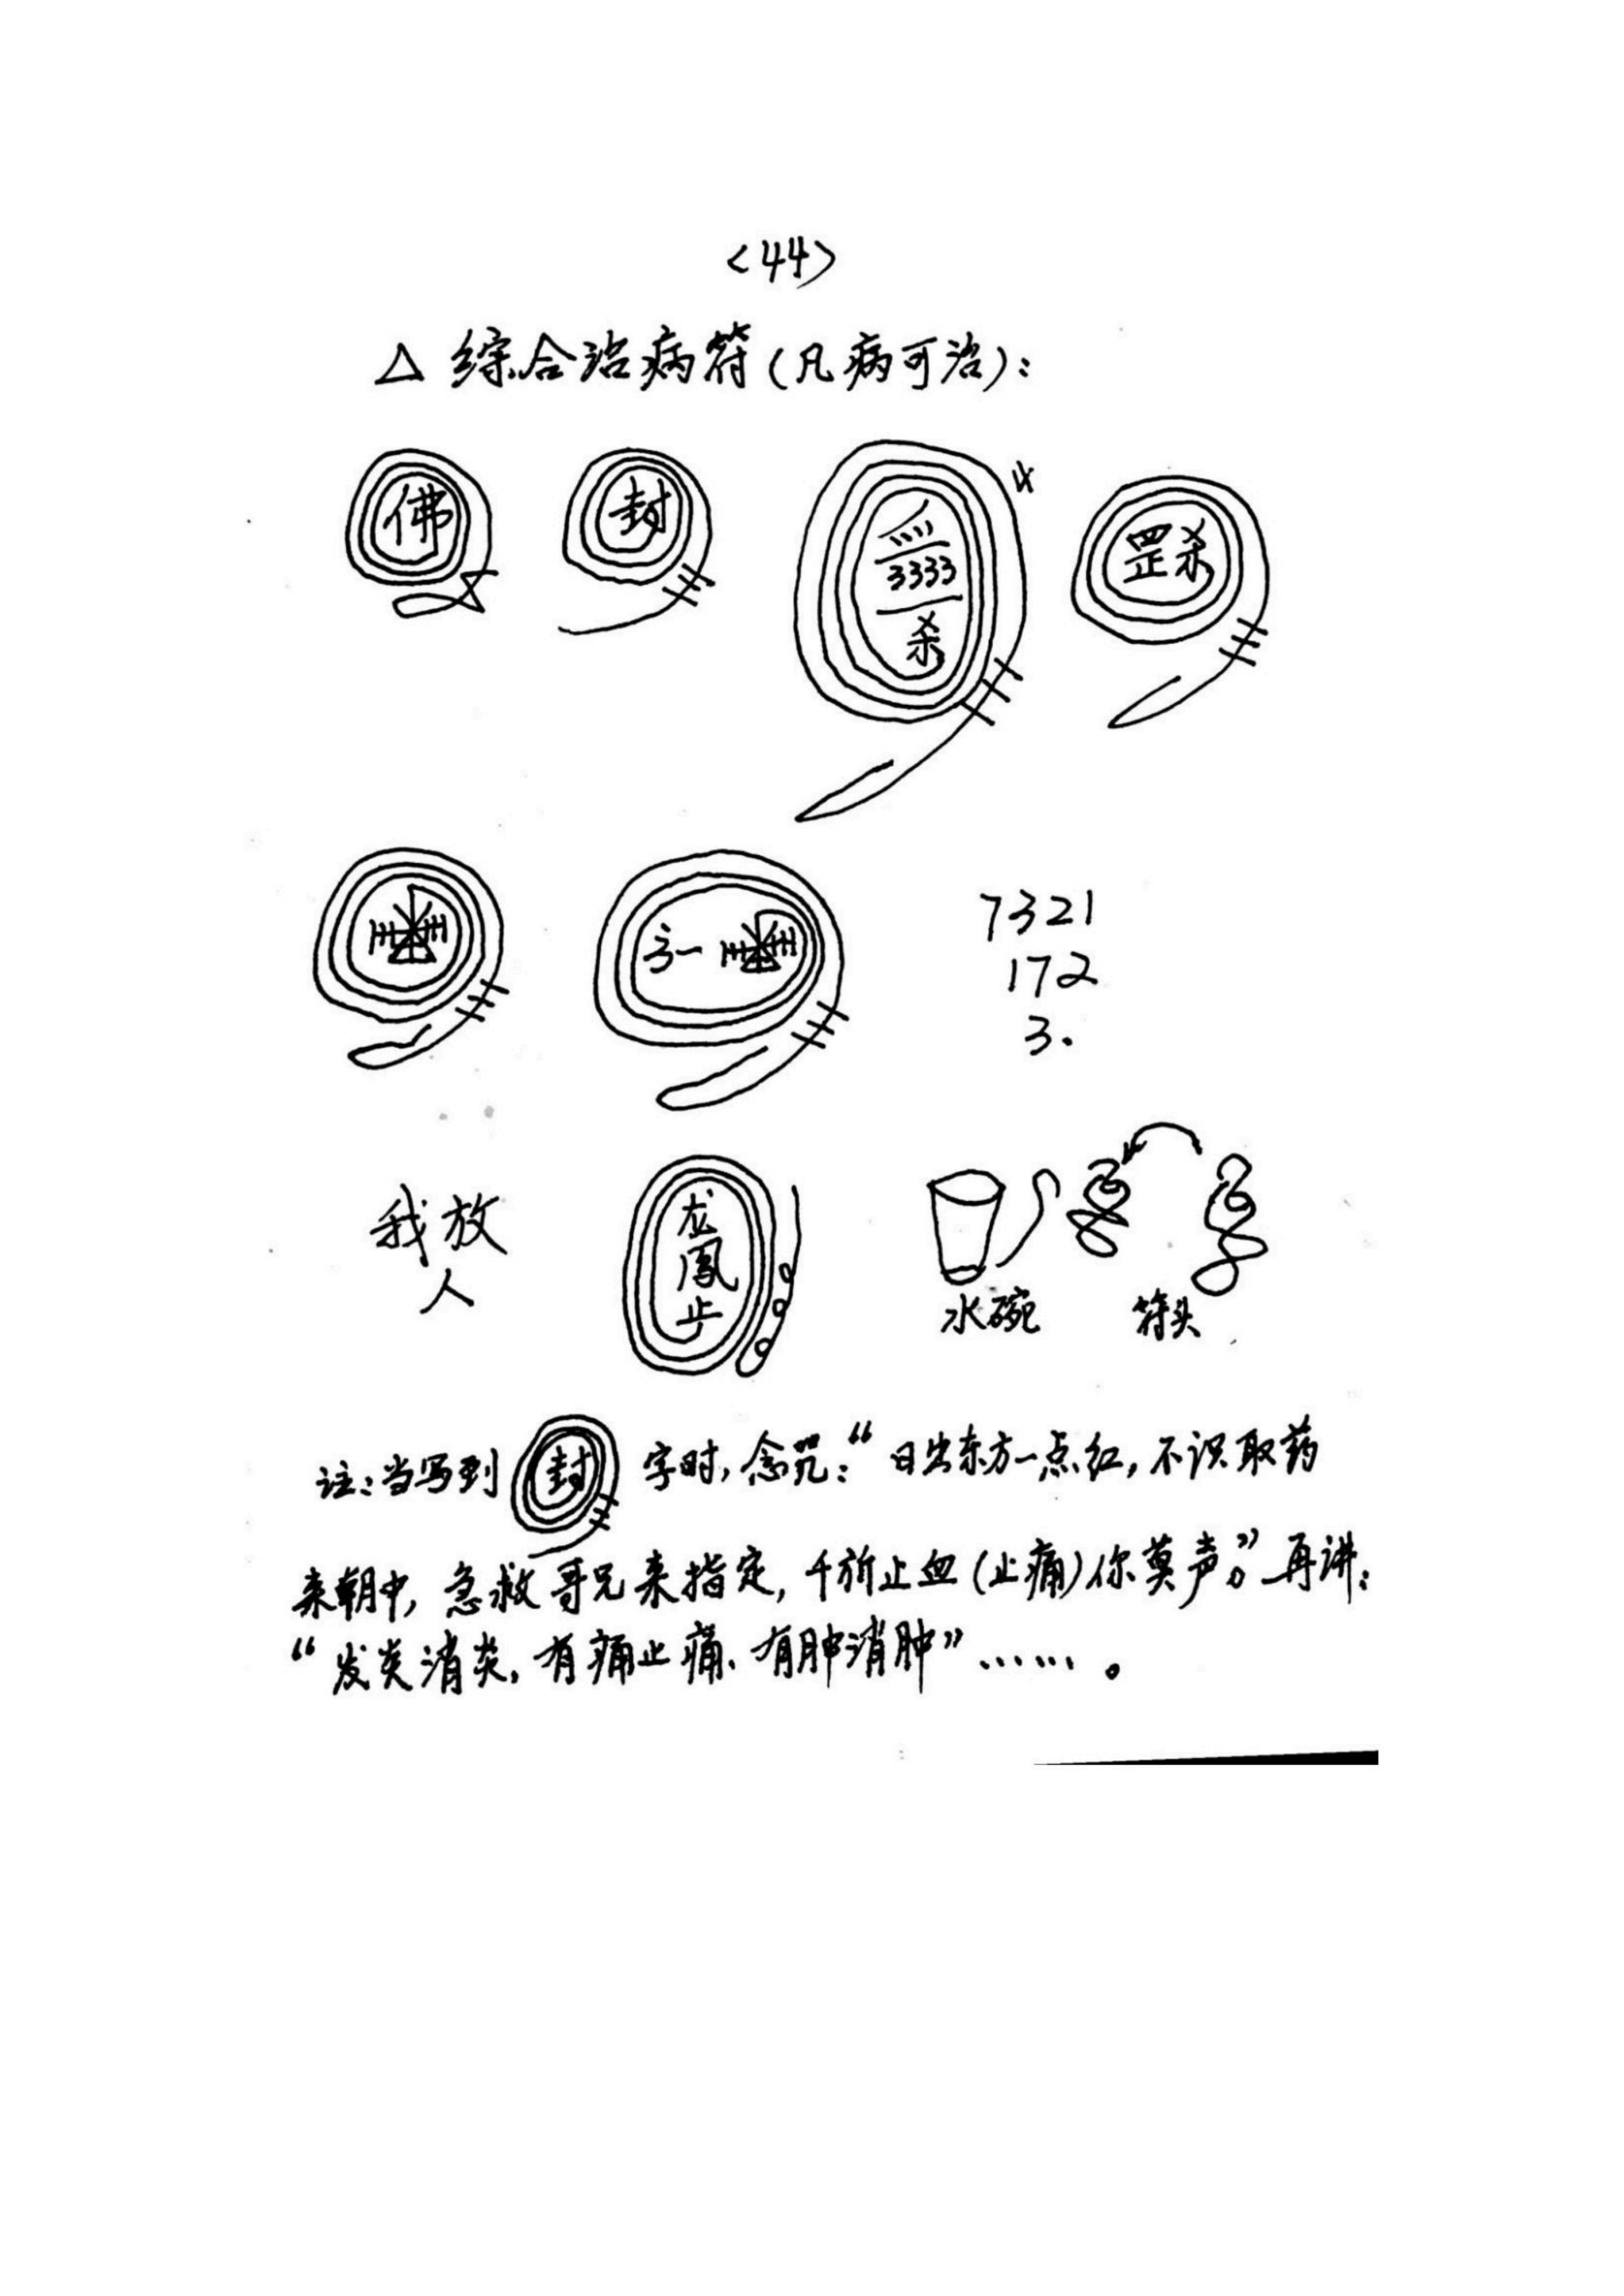 <44>
△ 综合治病符(凡病可治):
佛 封 3333 杀 罡杀
4
7321
172
3.
我放人
龙凤步
水碗 符头
注:当写到 封 字时,念咒:“日出东方一点红,不识取药
来朝中,急救哥兄来指定,千斫止血(止痛)你莫声。”再讲:
“发炎消炎,有痛止痛、有肿消肿”……。